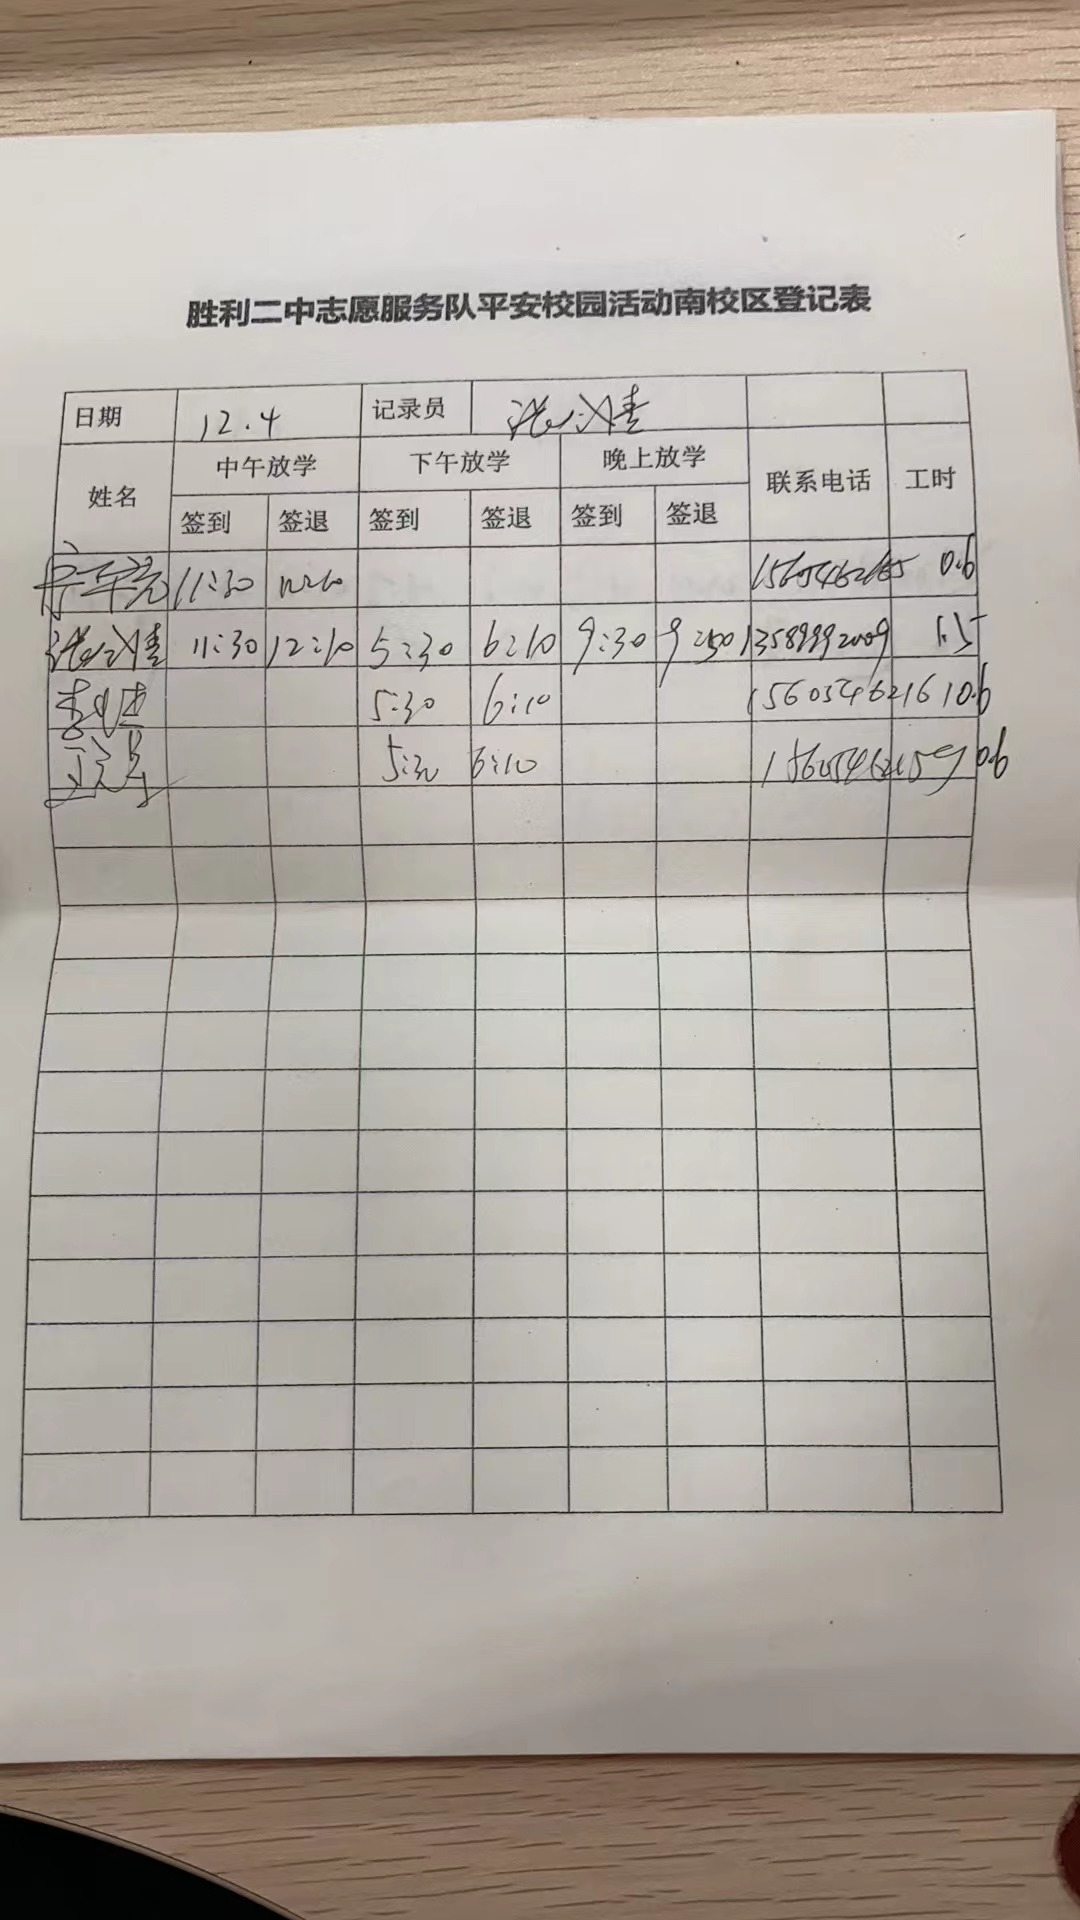 胜利二中志愿服务队平安校园活动南校区登记表
日期 12.4 记录员
姓名 中午放学 下午放学 晚上放学 联系电话 工时
签到 签退 签到 签退 签到 签退
11:30 12:10 0.6
11:30 12:10 5:30 6:10 9:30 9:50 13589992009 1.5
5:30 6:10 15605462161 0.6
5:30 6:10 15605462159 0.6